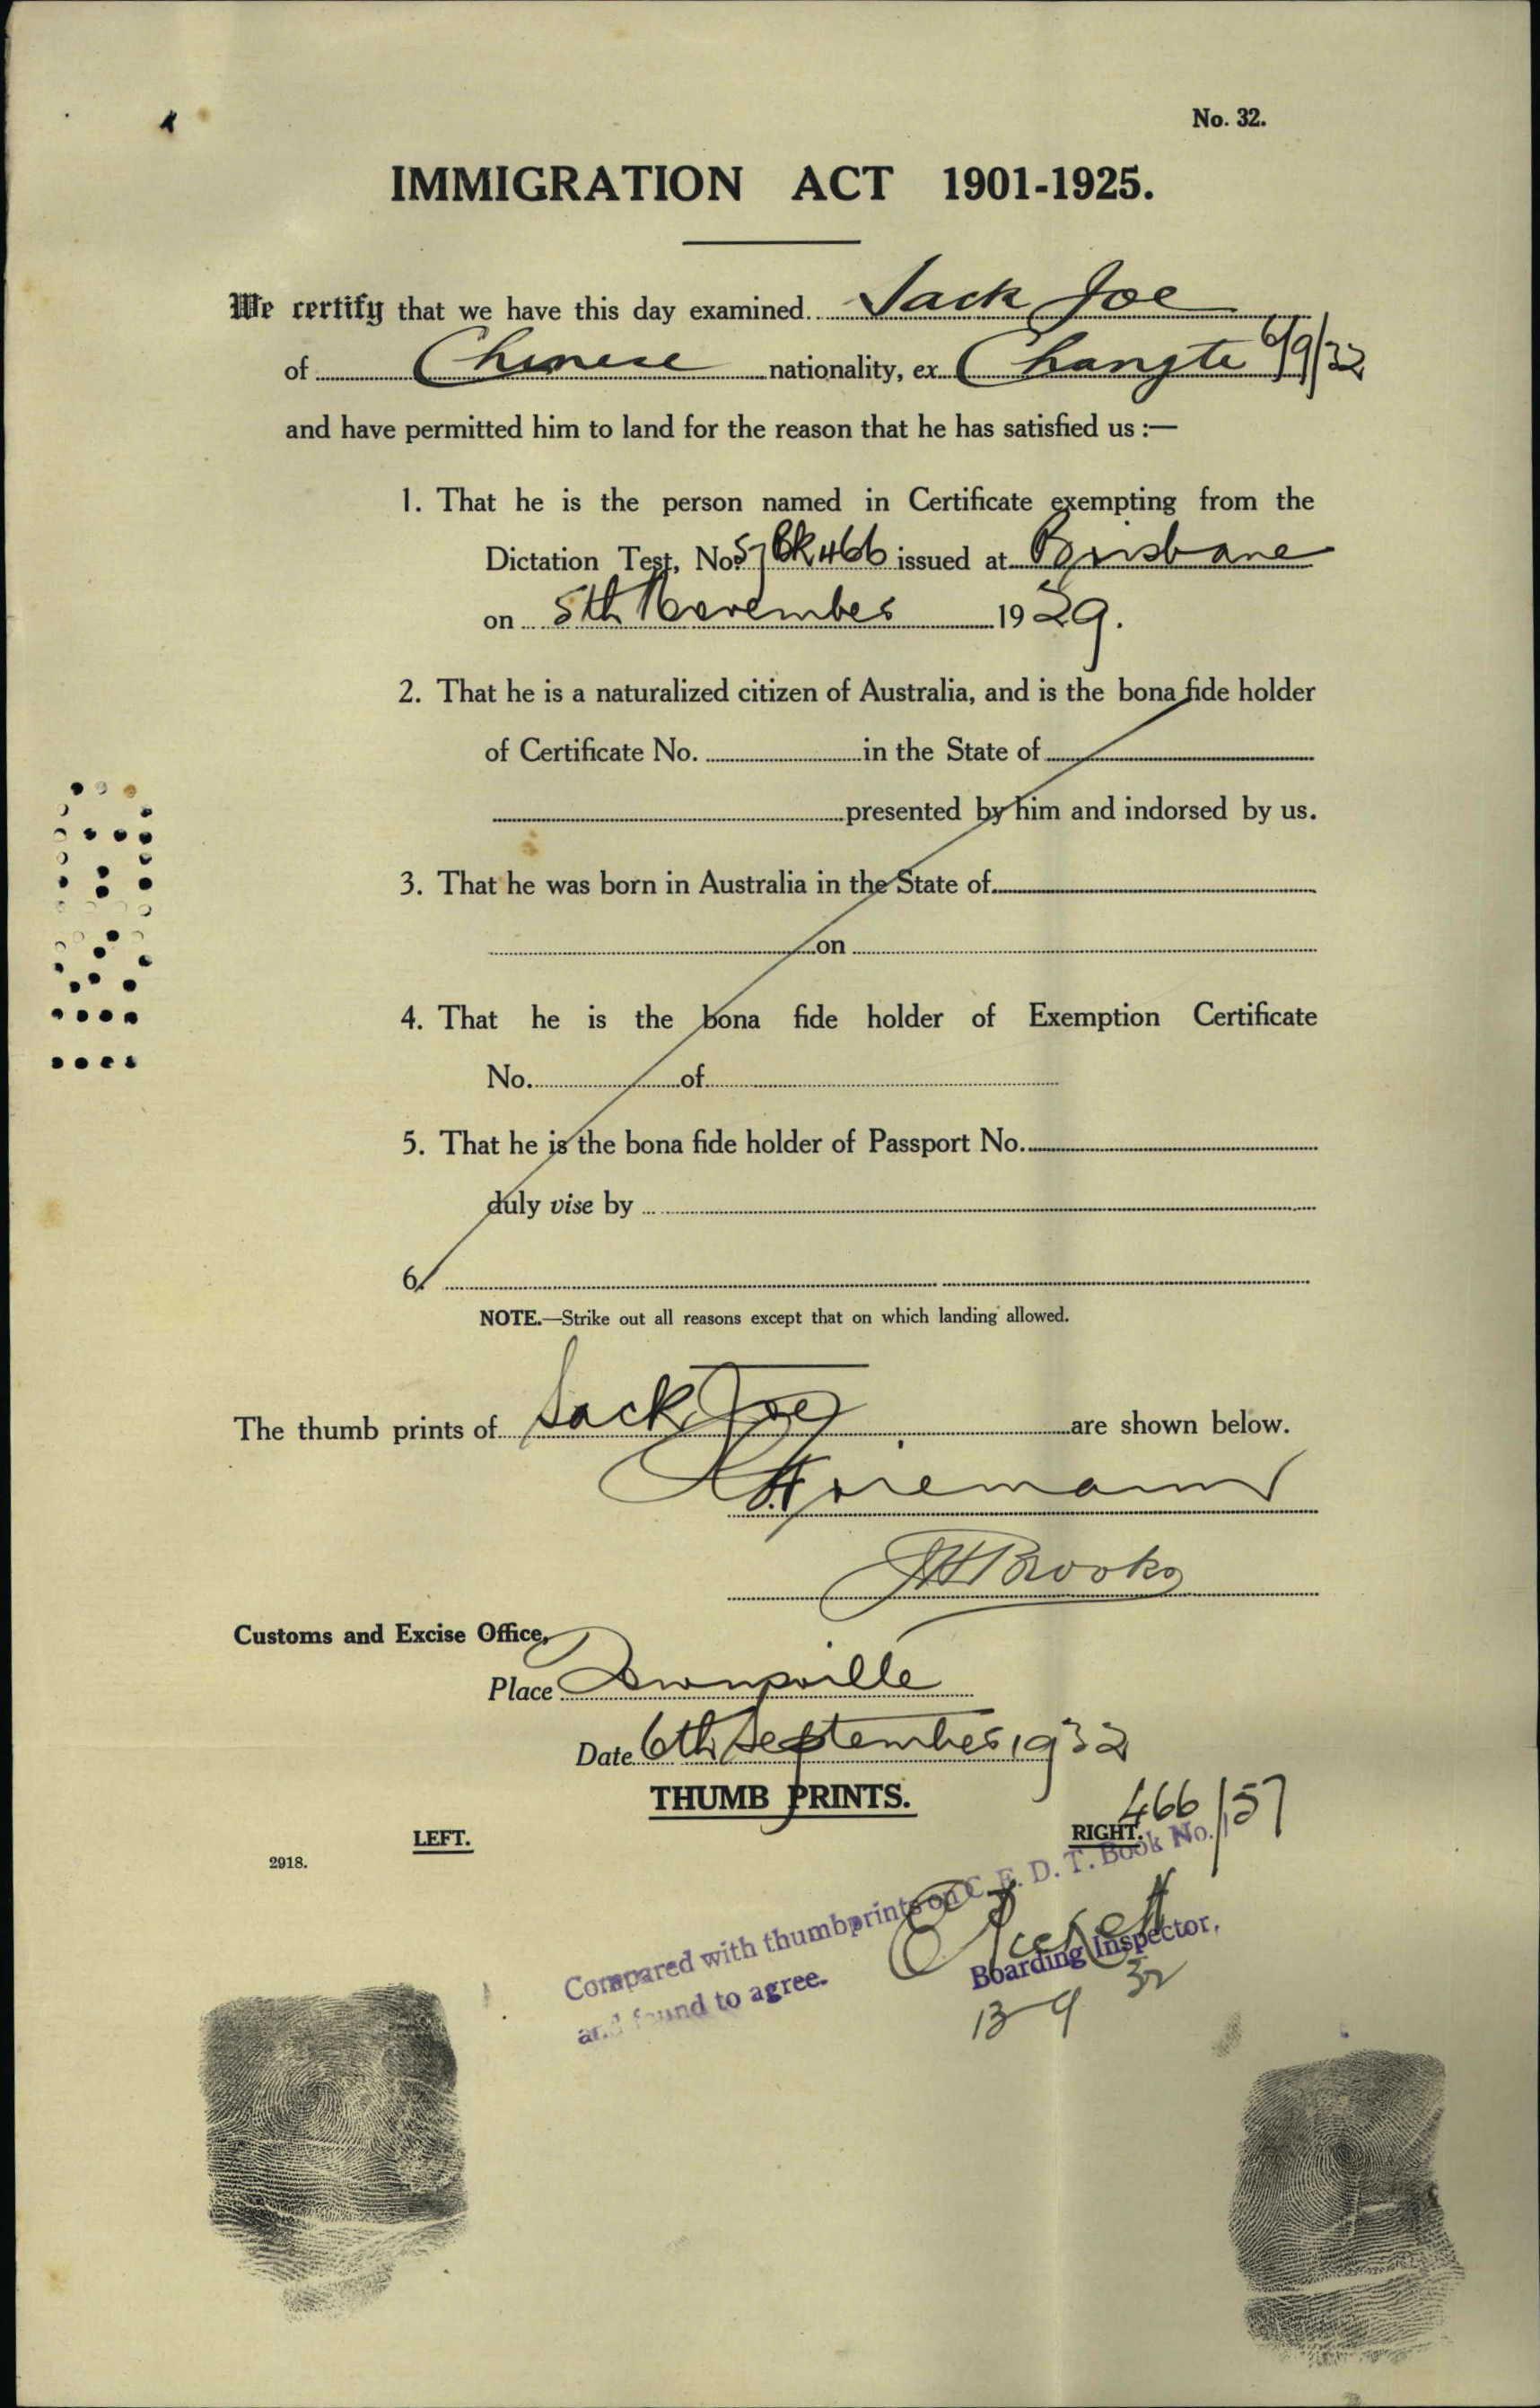 No. 32.
IMMIGRATION ACT 1901-1925.
We certify that we have this day examined Jack Joe
of Chinese nationality, ex Changte 6/9/32
and have permitted him to land for the reason that he has satisfied us :—
1. That he is the person named in Certificate exempting from the
Dictation Test, No. 57 Bk 466 issued at Brisbane
on 5th November 1929.
2. That he is a naturalized citizen of Australia, and is the bona fide holder
of Certificate No. in the State of
presented by him and indorsed by us.
3. That he was born in Australia in the State of
on
4. That he is the bona fide holder of Exemption Certificate
No. of
5. That he is the bona fide holder of Passport No.
duly vise by
6.
NOTE.—Strike out all reasons except that on which landing allowed.
The thumb prints of Jack Joe are shown below.
JH Brooks
Customs and Excise Office,
Place Townsville
Date 6th September 1932
THUMB PRINTS.
LEFT.
RIGHT.
466/57
2918.
Compared with thumbprints on C. E. D. T. Book No.
and found to agree.
Boarding Inspector.
13-9 32